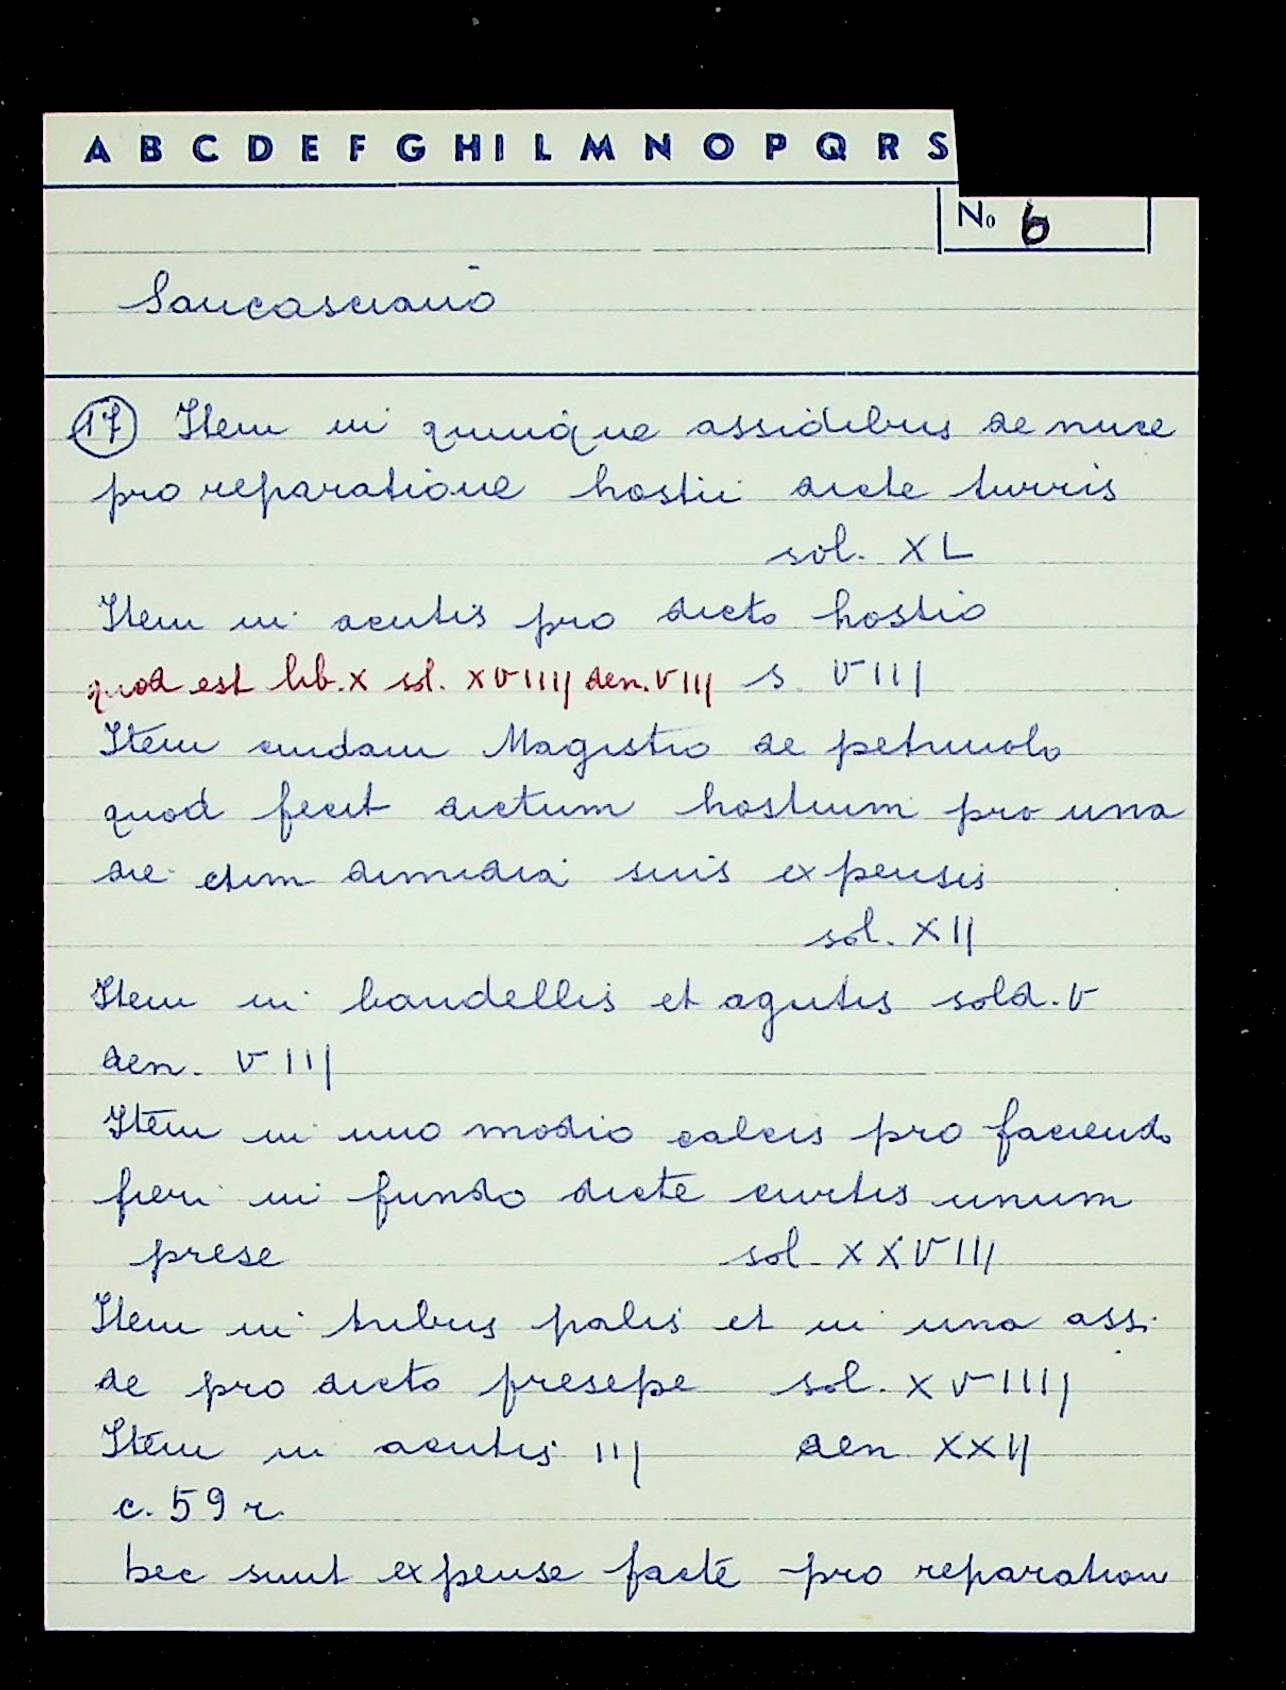 A B C D E F G H I L M N O P Q R S
No 6
Sancasciano
17 Item in quinque assidibus de nuce
pro reparatione hostii dicte turris
sol. XL
Item in acutis pro dicto hostio
quod est lib. X sol. XVIIIJ den. VIIJ s. VIIJ
Item cuidam Magistro de petriuolo
quod fecit dictum hostium pro una
die cum dimidia suis expensis
sol. XIJ
Item in bandellis et agutis sold. V
den. VIIJ
Item in uno modio calcis pro faciendo
fieri in fundo dicte curtis unum
prese sol. XXVIIJ
Item in tribus palis et in una assi
de pro dicto presepe sol. XVIIIJ
Item in acutis IIJ den XXIJ
c. 59 r.
hec sunt expense facte pro reparation